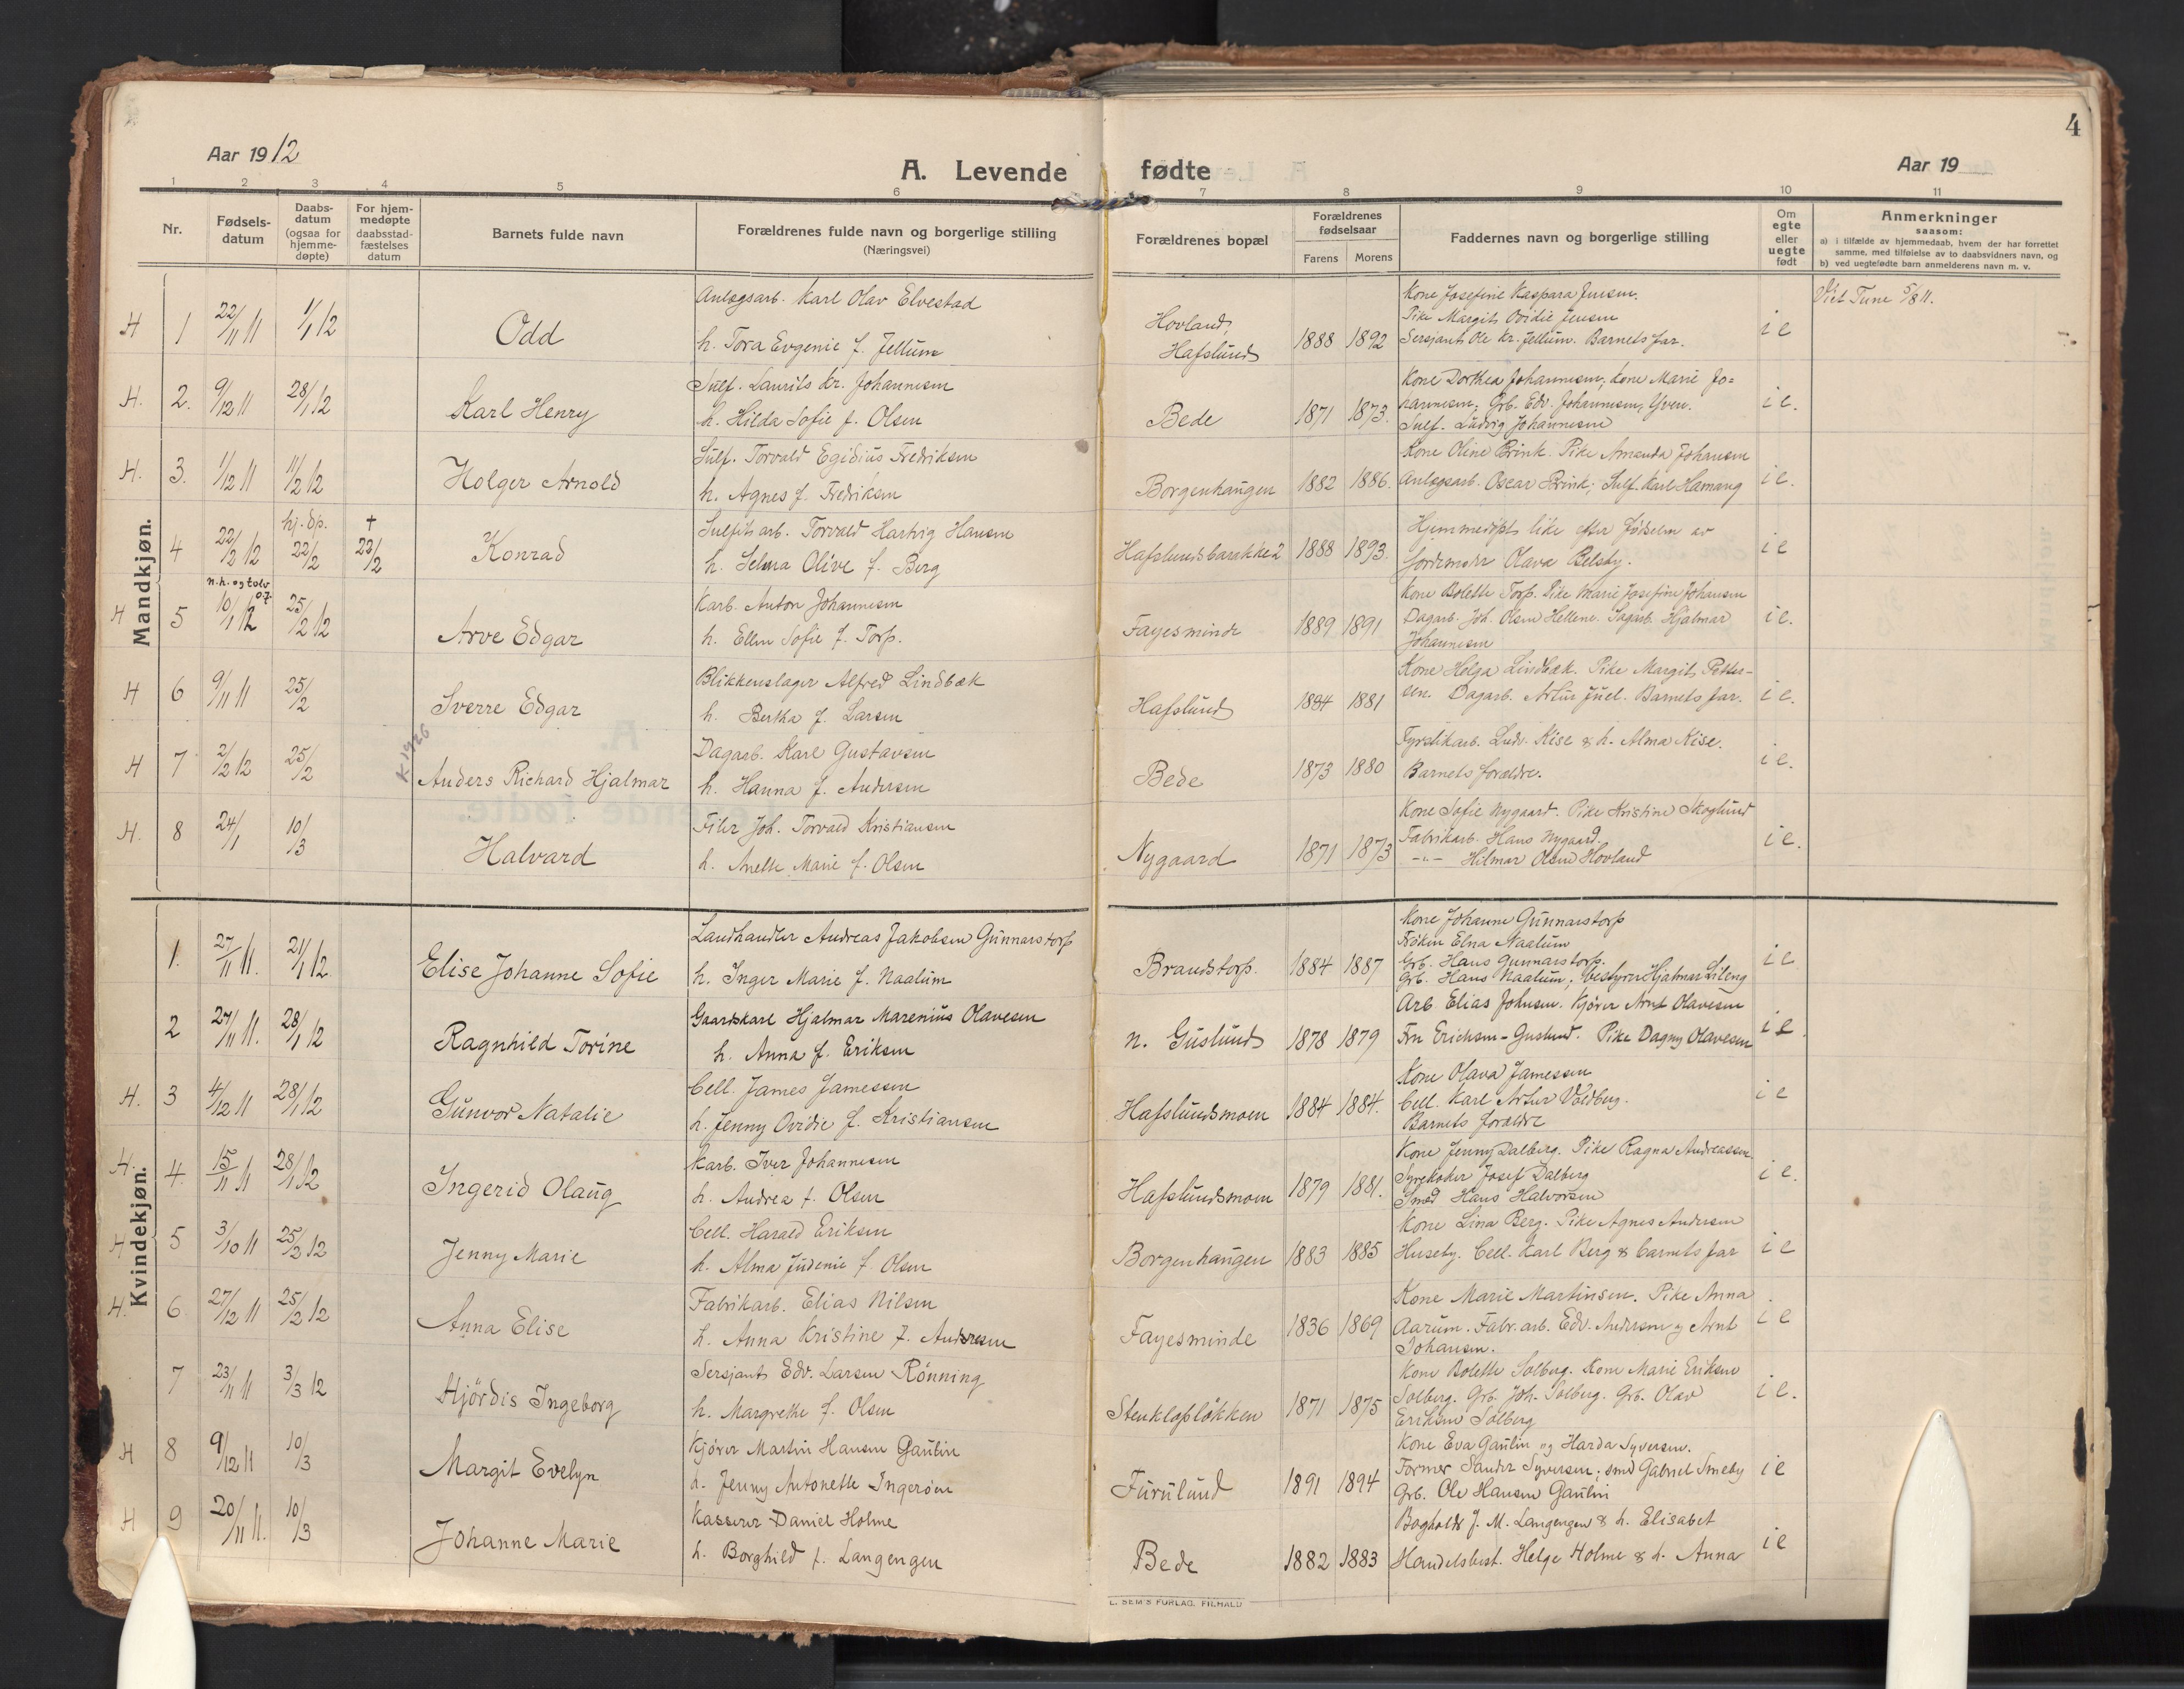 4
Aar 1912
A. Levende fødte
Aar 19
1 2 3 4 5 6 7 8 9 10 11
Nr.
Fødsels-
datum
Daabs-
datum
(ogsaa for
hjemme-
døpte)
For hjem-
medøpte
daabsstad-
fæstelses
datum
Barnets fulde navn
Forældrenes fulde navn og borgerlige stilling
(Næringsvei)
Forældrenes bopæl
Forældrenes
fødselsaar
Farens Morens
Faddernes navn og borgerlige stilling
Om
egte
eller
uegte
født
Anmerkninger
saasom:
a) i tilfælde av hjemmedaab, hvem der har forrettet
samme, med tilføielse av to daabsvidners navn, og
b) ved uegtefødte barn anmelderens navn m. v.
Mandkjøn.
H 1 22/11 11 1/1 12 Odd
Anlægsarb. Karl Olav Elvestad
h. Tora Evgenie f. Jellum
Hovland,
Hafslund
1888 1892
Kone Josefine Kaspara Jensen.
Pike Margit Ovidie Jensen
Sersjant Ole Kr. Jellum. Barnets far.
i e
Viet Tune 5/8 11.
H. 2. 9/12 11 28/1 12 Karl Henry
Sulf. Laurits Kr. Johannesen
h. Hilda Sofie f. Olsen
Bede 1871 1873.
Kone Dorthea Johannesen; kone Marie Jo=
hannesen; Grb. Edv. Johannesen, Yven.
Sulf. Ludvig Johannesen
i e.
H. 3. 1/12 11 11/2 12 Holger Arnold
Sulf. Torvald Egidius Fredriksen
h. Agnes f. Fredriksen
Borgenhaugen 1882 1886.
Kone Oline Brink. Pike Amanda Johansen
Anlægsarb. Oscar Brink; Sulf. Karl Hamang
i e.
4 22/2 12 hj. dp. 22/2 † 22/2 Konrad
Sulfitarb. Torvald Hartvig Hansen
h. Selma Olive f. Berg
Hafslundsbarakke 2 1888 1893.
Hjemmedøpt like efter fødselen av
jordemoder Olava Belsby.
i e
n. h. og tolv
H 5 10/1 12 25/2 12 Arve Edgar
Karb. Anton Johannesen
h. Ellen Sofie f. Torp.
Fayesminde 1889 1891
Kone Bolette Torp. Pike Marie Josefine Johansen
Dagarb. Joh. Olsen Hellene. Sagarb. Hjalmar
Johannesen
i e.
H 6 9/11 11 25/2 Sverre Edgar
Blikkenslager Alfred Lindbæk
h. Berta f. Larsen
Hafslund 1884 1881
Kone Helga Lindbæk. Pike Margit Petter-
sen. Dagarb. Artur Juel. Barnets far.
i e.
K 1926
H 7 2/2 12 25/2 Anders Richard Hjalmar
Dagarb. Karl Gustavsen
h. Hanna f. Andersen
Bede 1873 1880
Fyrstikarb. Ludv. Kise & h. Alma Kise.
Barnets forældre.
i e.
H. 8 24/1 10/3 Halvard
Filer Joh. Torvald Kristiansen
h. Anette Marie f. Olsen
Nygaard 1871 1873
Kone Sofie Nygaard. Pike Kristine Skoglund
Fabrikarb. Hans Nygaard.
-"- Hilmar Olsen Hovland
i e.
Kvindekjøn.
1. 27/11 11. 21/1 12 Elise Johanne Sofie
Landhandler Andreas Jakobsen Gunnarstorp
h. Inger Marie f. Naalum
Brandstorp. 1884 1887
Kone Johanne Gunnarstorp
Frøken Elna Naalum
Grb. Hans Gunnarstorp.
Grb. Hans Naalum; bestyrer Hjalmar Lileng
i e
2 27/11 11. 28/1 12 Ragnhild Torine
Gaardskarl Hjalmar Marenius Olavesen
h. Anna f. Eriksen
n. Guslund 1878 1879
Arb. Elias Johnsen. Kjører Arnt Olavesen
Fru Erichsen-Guslund. Pike Dagny Olavesen
i e.
H. 3 4/12 11 28/1 12 Gunvor Natalie
Cell. James Jamessen
h. Jenny Ovidie f. Kristiansen
Hafslundsmoen 1884 1884.
Kone Olava Jamessen
Cell. Karl Artur Voldberg.
Barnets forældre
i e
H. 4. 15/11 11 28/1 12 Ingerid Olaug
Karb. Iver Johannesen
h. Andrea f. Olsen
Hafslundsmoen 1879 1881.
Kone Jenny Dalberg. Pike Ragna Andreassen
Syrekoker Josef Dalberg
Smed Hans Halvorsen
i e.
H 5 3/10 11 25/2 12 Jenny Marie
Cell. Harald Eriksen
h. Alma Judenie f. Olsen
Borgenhaugen 1883 1885
Kone Lina Berg. Pike Agnes Andersen
Huseby. Cell. Karl Berg & barnets far
i e
H. 6 27/12 11 25/2 12 Anna Elise
Fabrikarb. Elias Nilsen
h. Anna Kristine f. Andresen
Fayesminde 1836 1869
Kone Marie Martinsen. Pike Anna
Aarum. Fabr.arb. Edv. Andersen og Arnt
Johansen.
i e
7 23/11 11 3/3 12 Hjördis Ingeborg
Sersjant Edv. Larsen Rönning
h. Margrethe f. Olsen
Stenkløpløkken 1871 1875
Kone Bolette Solberg. Kone Marie Eriksen
Solberg. Grb. Joh. Solberg. Grb. Olav
Eriksen Solberg
i e.
H 8 9/12 11 10/3 Margit Evelyn
Kjører Martin Hansen Gautin
h. Jenny Antonette Ingerøen
Furulund 1891 1894
Kone Eva Gautin og Harda Syversen.
Former Sander Syversen; smed Gabriel Smeby
Grb. Ole Hansen Gautin
i e
H 9 20/11 11. 10/3 Johanne Marie
Kasserer Daniel Holme
h. Borghild f. Langengen
Bede 1882 1883
Bogholder J. M. Langengen & h. Elisabet
Handelsbest. Helge Holme & h. Anna
i e
E. SEM'S FORLAG, F.HALD